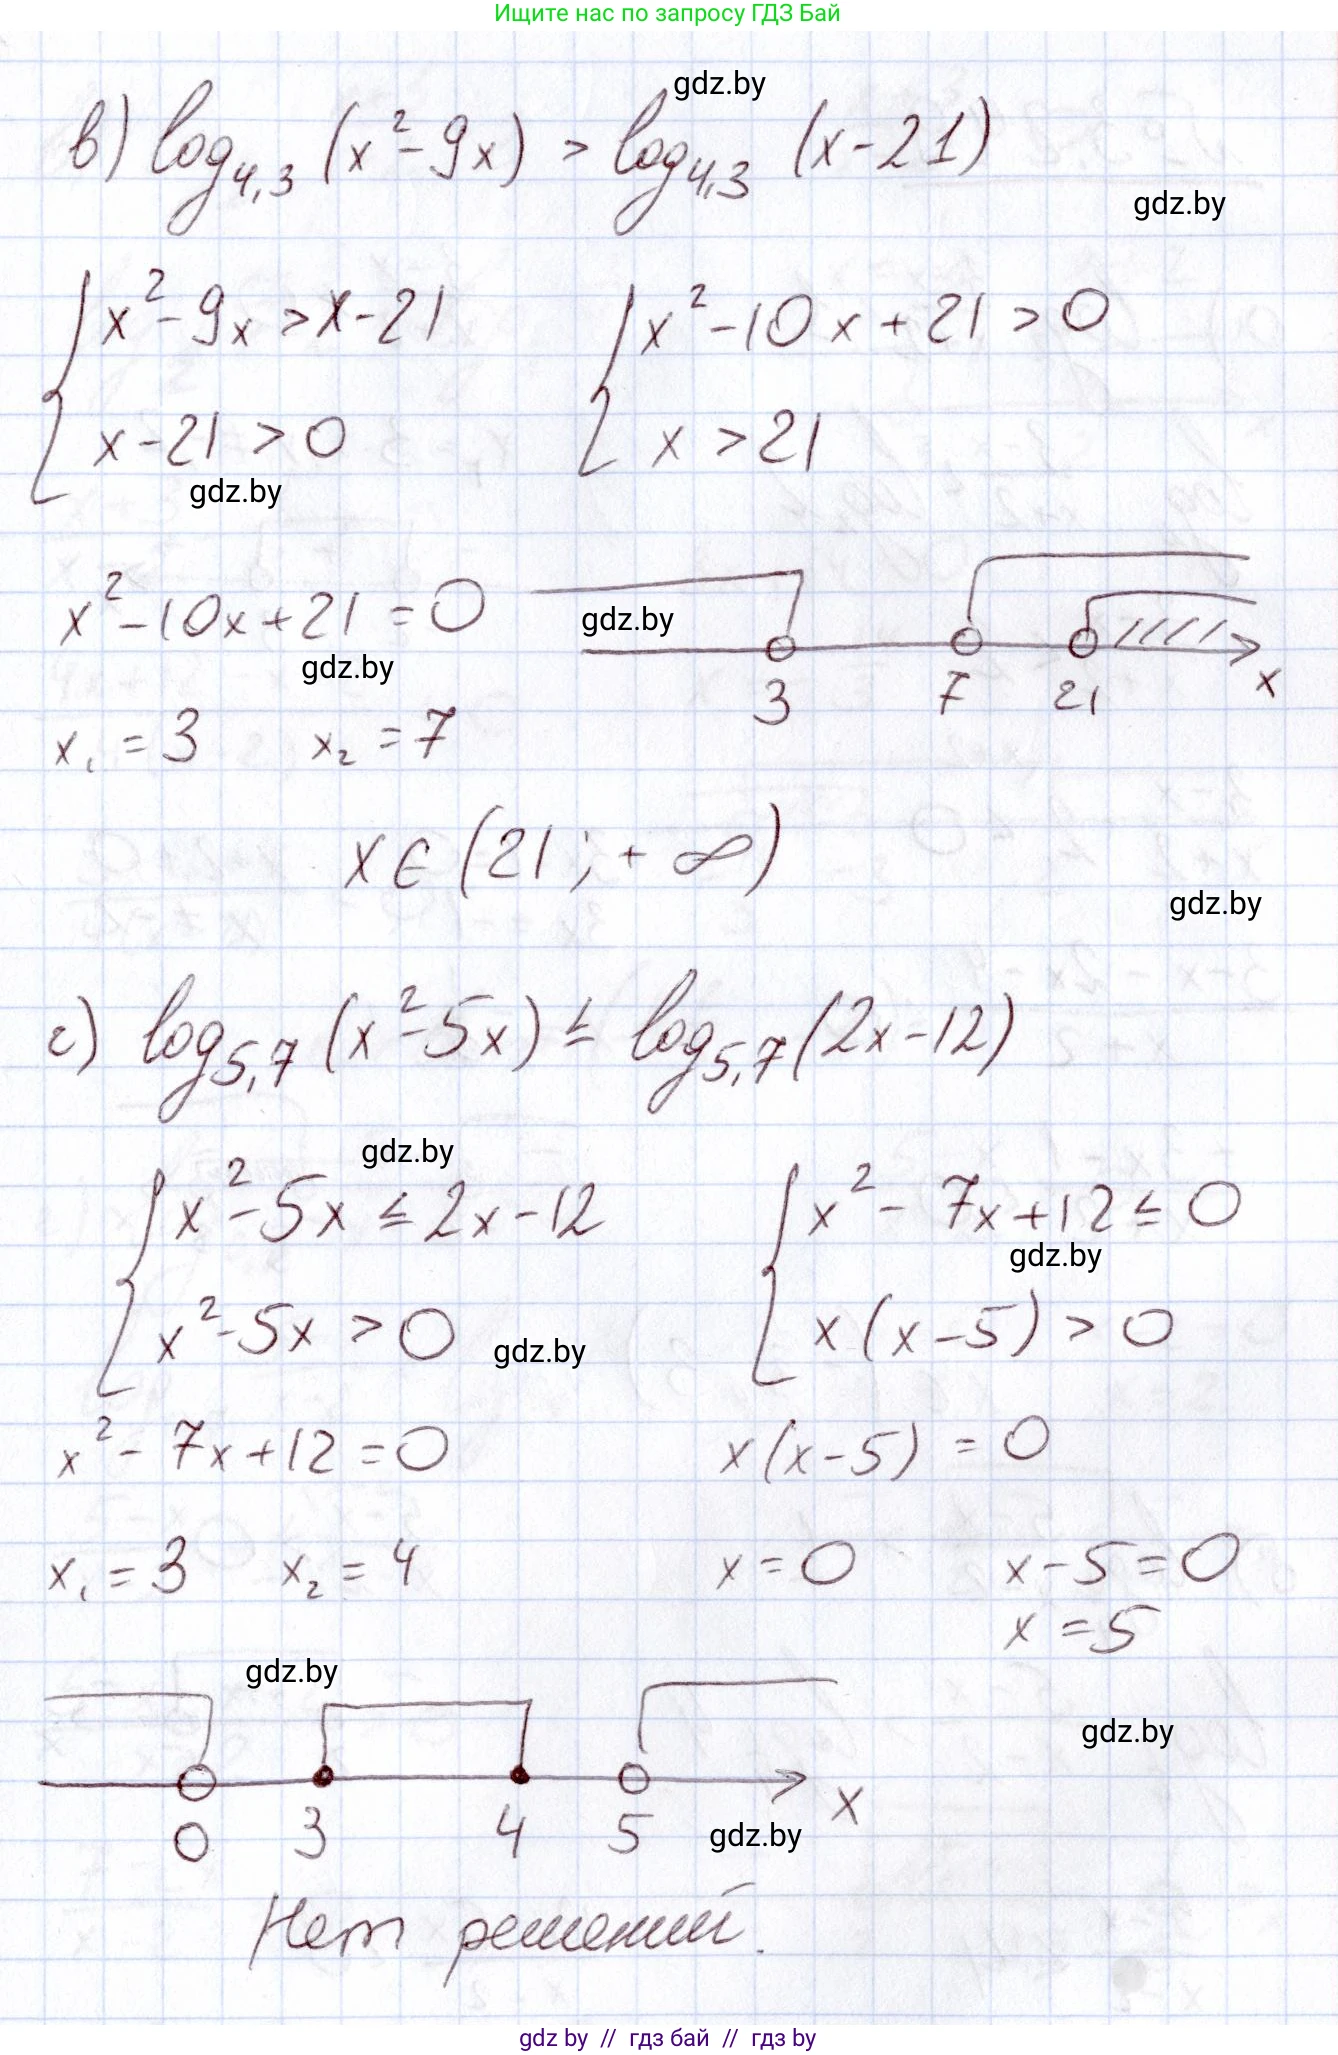 Ищите нас по запросу ГДЗ Бай
gdz.by
в) log₄,₃ (x² - 9x) > log₄,₃ (x - 21)
gdz.by
{ x² - 9x > x - 21    { x² - 10x + 21 > 0
x - 21 > 0    x > 21
gdz.by
x² - 10x + 21 = 0
gdz.by
gdz.by
3 7 21 x
x₁ = 3    x₂ = 7
x ∈ (21; + ∞)
gdz.by
г) log₅,₇ (x² - 5x) ≤ log₅,₇ (2x - 12)
gdz.by
{ x² - 5x ≤ 2x - 12    { x² - 7x + 12 ≤ 0
gdz.by
x² - 5x > 0    x(x - 5) > 0
gdz.by
x² - 7x + 12 = 0    x(x - 5) = 0
x₁ = 3    x₂ = 4    x = 0    x - 5 = 0
x = 5
gdz.by
gdz.by
0 3 4 5 x
gdz.by
Нет решений.
gdz by // гдз бай // гдз by